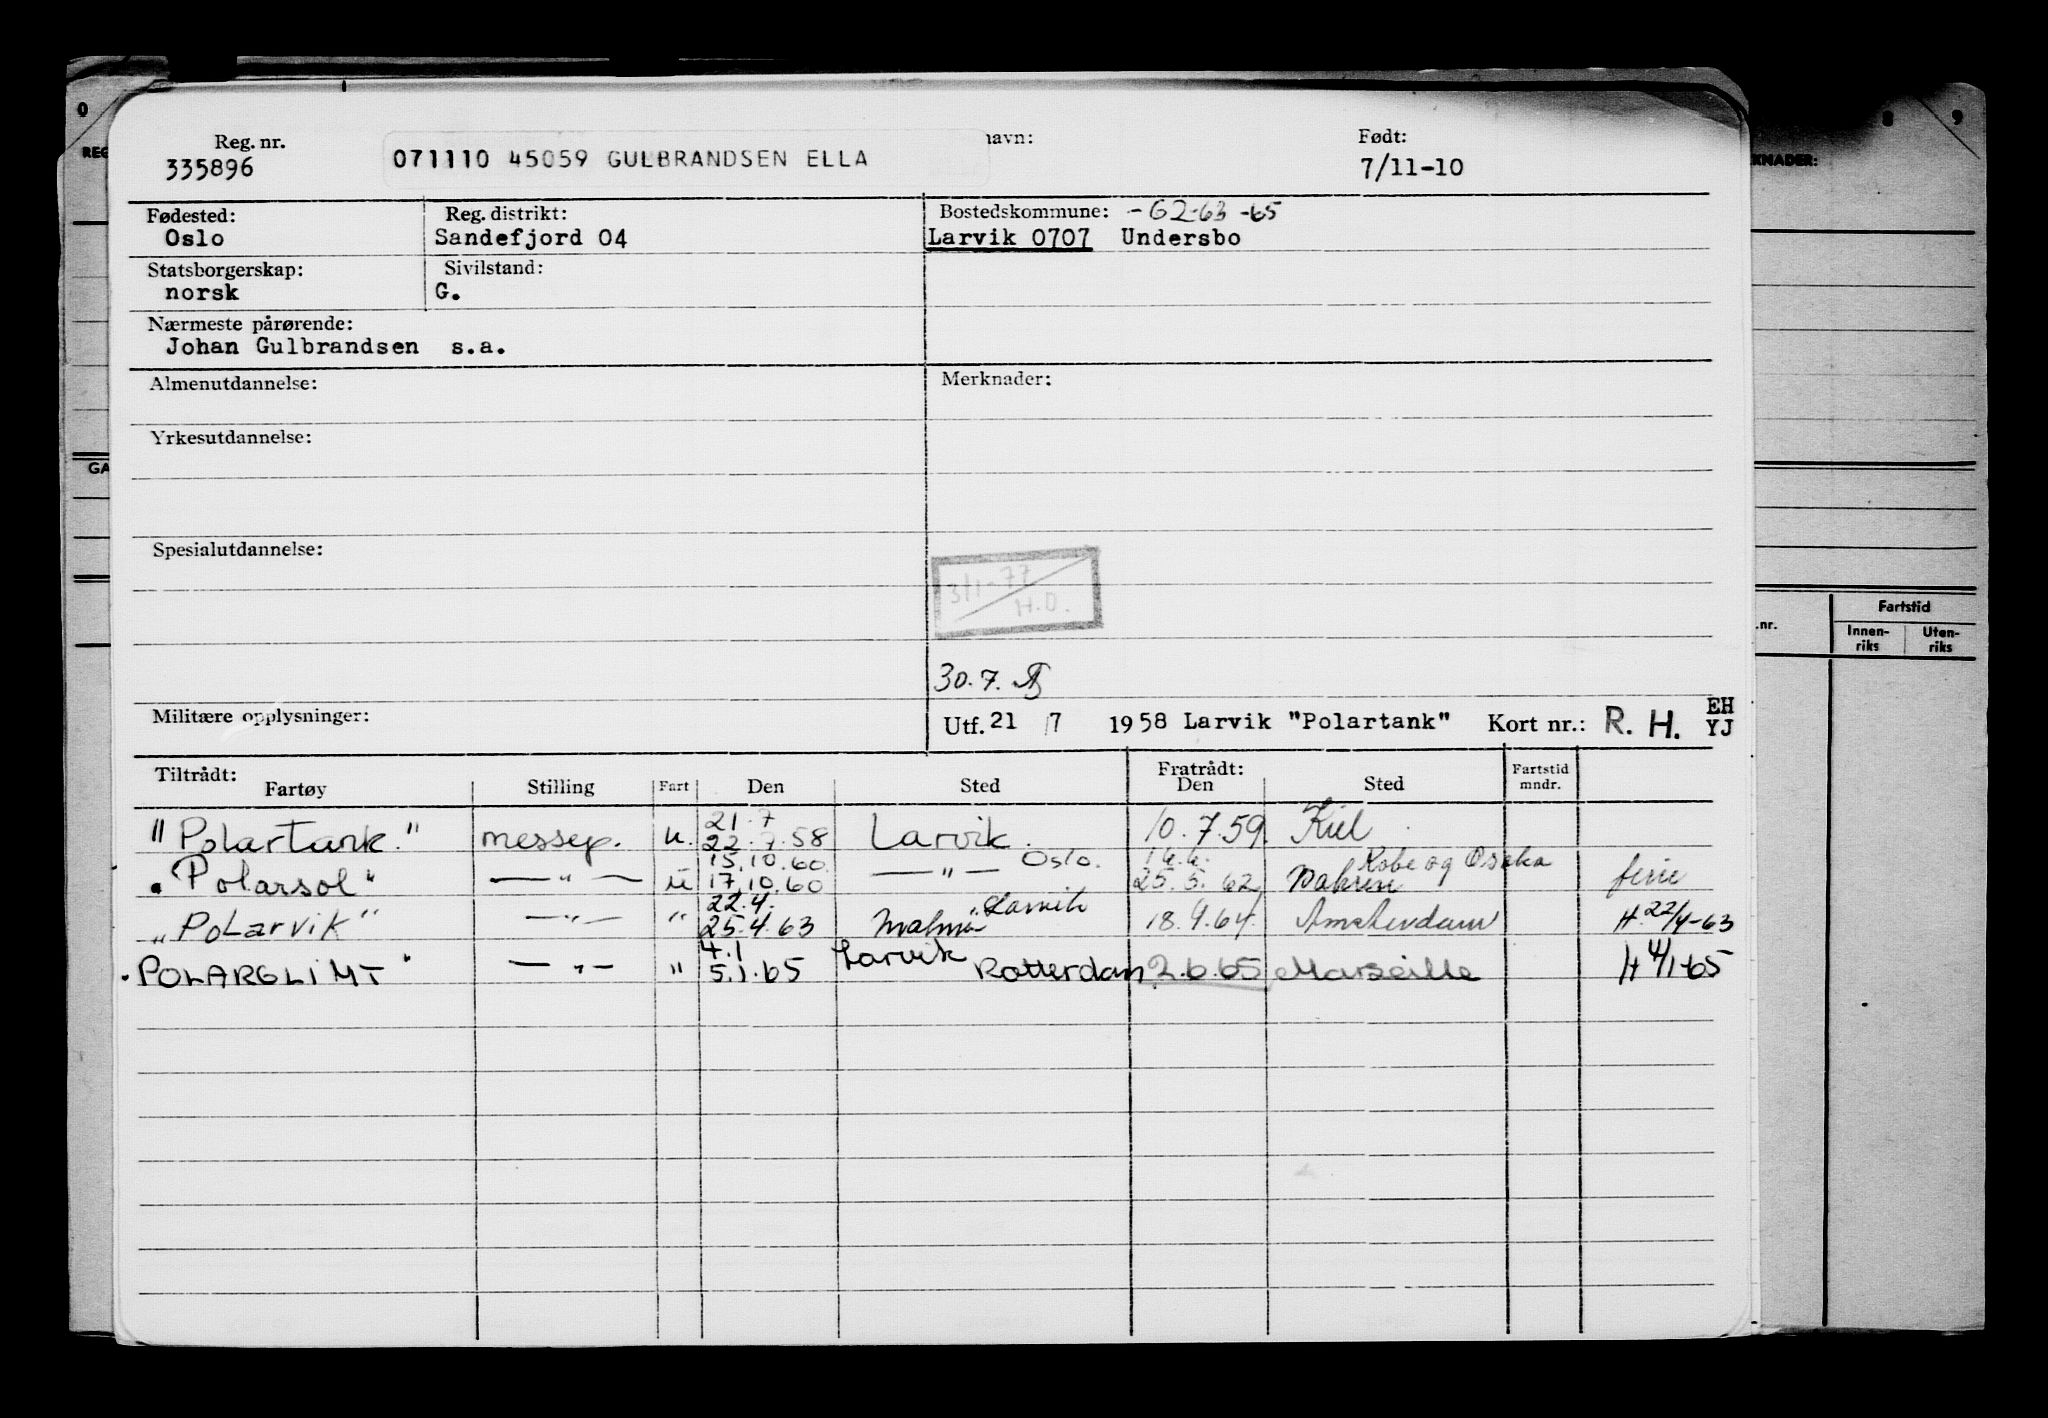 0 8 9
REG KNADER:
Reg. nr. navn: Født:
335896 071110 45059 GULBRANDSEN ELLA 7/11-10
Fødested: Reg. distrikt: Bostedskommune: -62-63-65
Oslo Sandefjord 04 Larvik 0707 Undersbo
Statsborgerskap: Sivilstand:
norsk G.
Nærmeste pårørende:
Johan Gulbrandsen s.a.
Almenutdannelse: Merknader:
Yrkesutdannelse:
GA
Spesialutdannelse:
3/1-77
H.O.
.nr. Fartstid
Innen-riks Uten-riks
30.7.
Militære opplysninger: Utf. 21 /7 1958 Larvik "Polartank" Kort nr.: R. H. EH YJ
Tiltrådt: Fratrådt: Fartstid mndr.
Fartøy Stilling Fart Den Sted Den Sted
21.7
"Polartank" messep. u. 22.7.58 Larvik 10.7.59. Kiel
15.10.60 Oslo. Kobe og Osaka
"Polarsol" —"— u 17.10.60 —"— 25.5.62 ferie
22.4. Larvik
"Polarvik" —"— " 25.4.63 Malmø 18.9.64 Amsterdam H 22/4-63
4.1 Larvik
"POLARGLIMT" —"— " 5.1.65 Rotterdam 2.6.65 Marseille H 4/1-65